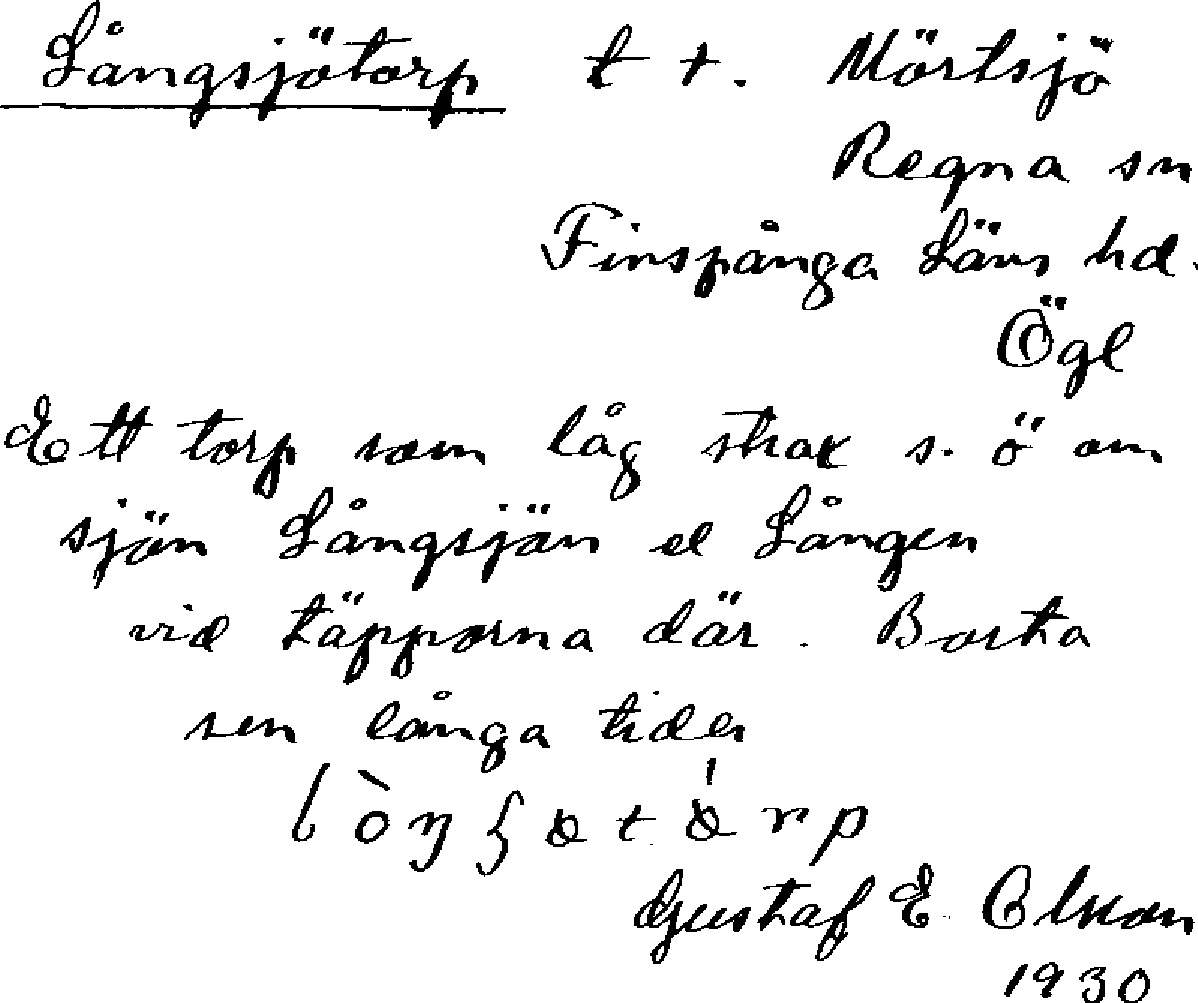 Långsjötorp t t. Mörtsjö
Regna sn
Finspånga Läns hd.
Ögl
Ett torp som låg strax s. ö om
sjön Långsjön el Lången
vid täpporna där. Borta
sen långa tider
Gustaf E. Olson
1930